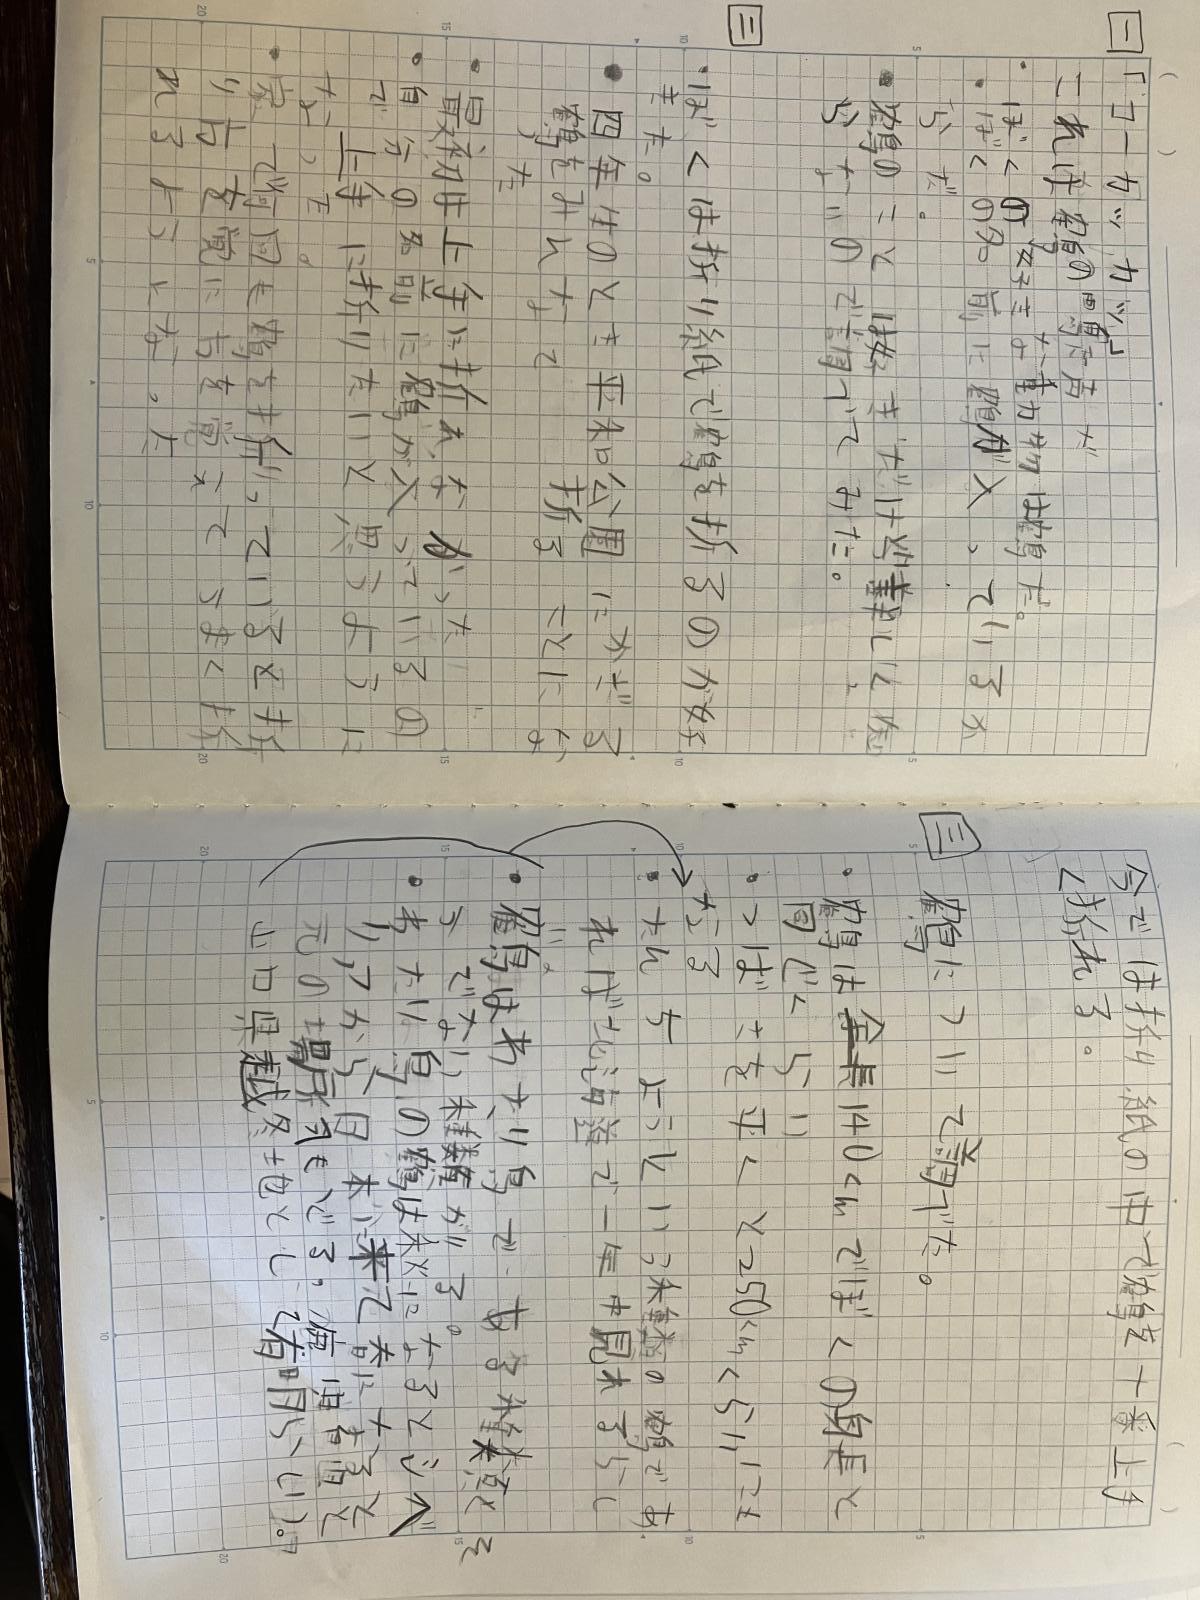 一
「コーカツカツ」
これは鶴の鳴き声だ
・ぼくの好きな動物は鶴だ。
・ぼくの名前に鶴が入っているか
らだ。
・鶴のこと好きだけど
らないので調べてみた。
二
・ぼくは折り紙で鶴を折るのが好
きだ。
・四年生のとき平和公園にかざる
鶴をみんなで折ることにな
った
・最初は上手に折れなかった
・自分の名前に鶴が入っているの
で上手に折りたいと思うように
なった。
・家で何回も鶴を折っている
り方を覚えてうまく折
れるようになった。
今では折り紙の中で鶴を一番上手
く折れる。
三
鶴について調べた。
・鶴は全長140cmでぼくの身長と
同じくらい
・つばさを平くと250cmくらいにも
なる
・たんちょうという種類の鶴であ
れば北海道で一年中見れるらし
い。
・鶴はわたり鳥で、ある種類と
そうでない種類がある。
・わたり鳥の鶴は秋になるとシベ
リアから日本に来て春になると
元の場所にもどる。鹿児島県と
山口県が越冬地として有名らしい。